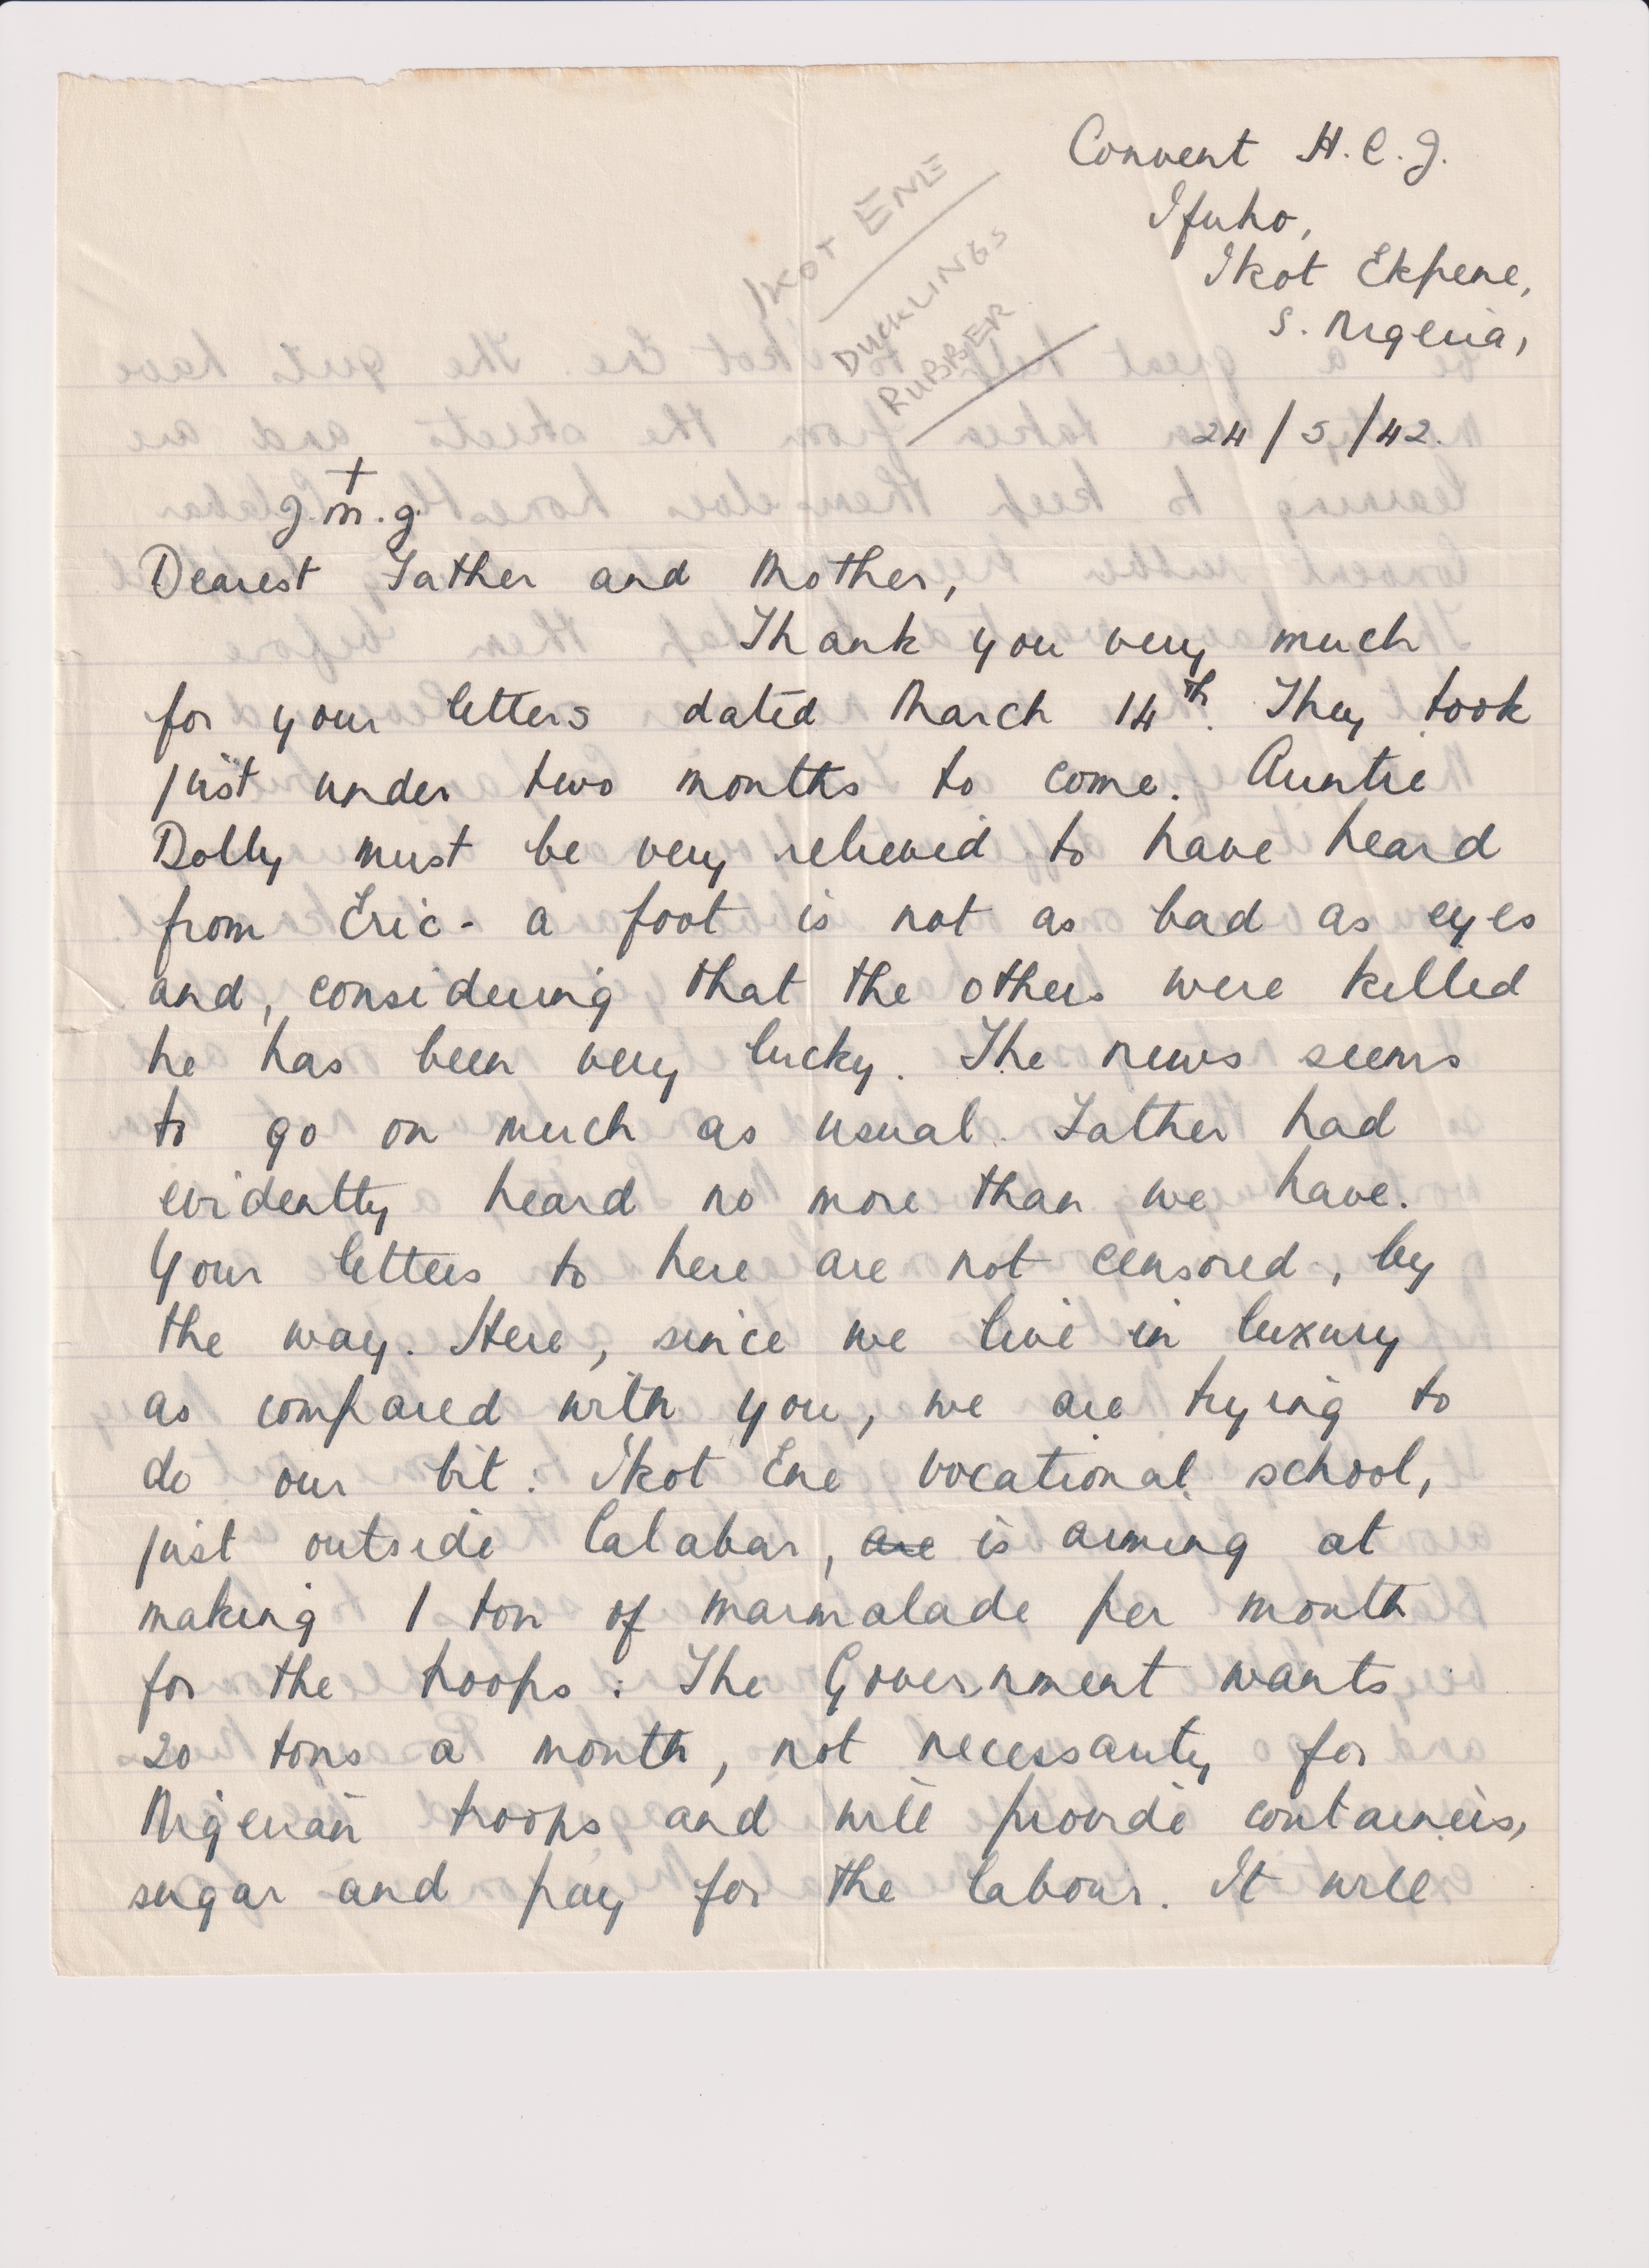 Convent H.C.J.
Ifuho,
Ikot Ekpene,
S. Nigeria,
24/5/42.
IKOT ENE
DUCKLINGS
RUBBER
+
J.M.J.
Dearest Father and Mother,
Thank you very much
for your letters dated March 14th. They took
just under two months to come. Auntie
Dolly must be very relieved to have heard
from Eric - a foot is not as bad as eyes
and, considering that the others were killed
he has been very lucky. The news seems
to go on much as usual. Father had
evidently heard no more than we have.
Your letters to here are not censored, by
the way. Here, since we live in luxury
as compared with you, we are trying to
do our bit: Ikot Ene vocational school,
just outside Calabar, are is aiming at
making 1 ton of marmalade per month
for the troops: The Government wants
20 tons a month, not necessarily for
Nigerian troops and will provide containers,
sugar and pay for the labour. It will